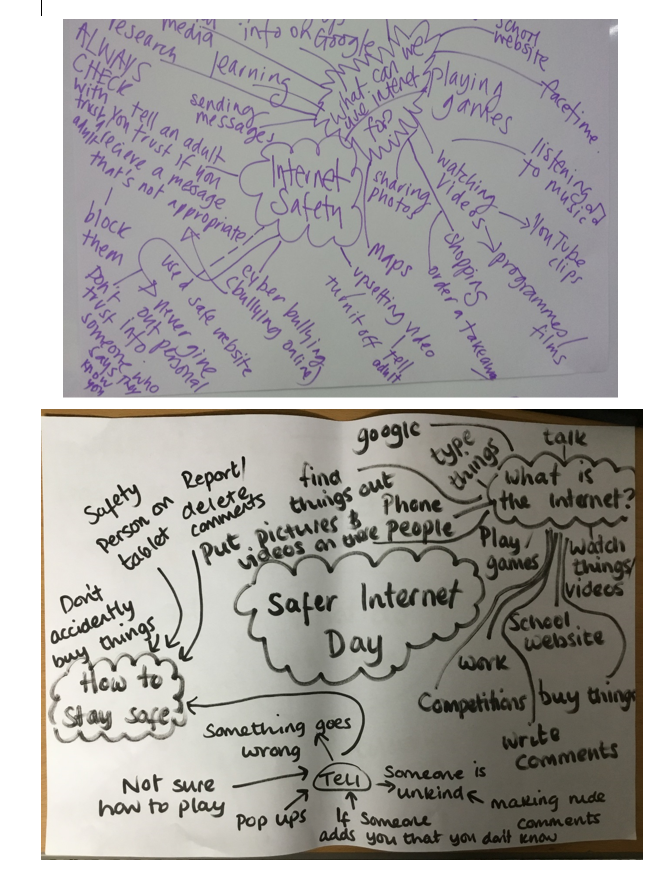 media
info on
Google
research
learning
what can we
use internet
for?
school
website
facetime
playing
games
listening
to music
sending
messages
ALWAYS
CHECK
with
trust
adult
tell an adult
you trust if you
recieve a message
that's not appropriate!
block
them
Internet
Safety
sharing
photos
watching
videos
YouTube
clips
programmes/
films
shopping
order a takeaway
maps
upsetting video
turn it off
tell
adult
cyber bullying
(bullying online)
use a safe website
never give
out personal
info
Don't
trust
someone who
says they
know
you
google
type
things
talk
What is
the Internet?
find
things out
Phone
People
Put pictures &
videos on
Play
games
Watch
things/
videos
School
website
work
Competitions
buy things
write
comments
Safer Internet
Day
Safety
person on
tablet
Report/
delete
comments
Don't
accidently
buy things
How to
Stay safe
Something goes
wrong
Tell
Not sure
how to play
Pop ups
If Someone
adds you that you don't know
Someone is
unkind
making rude
comments